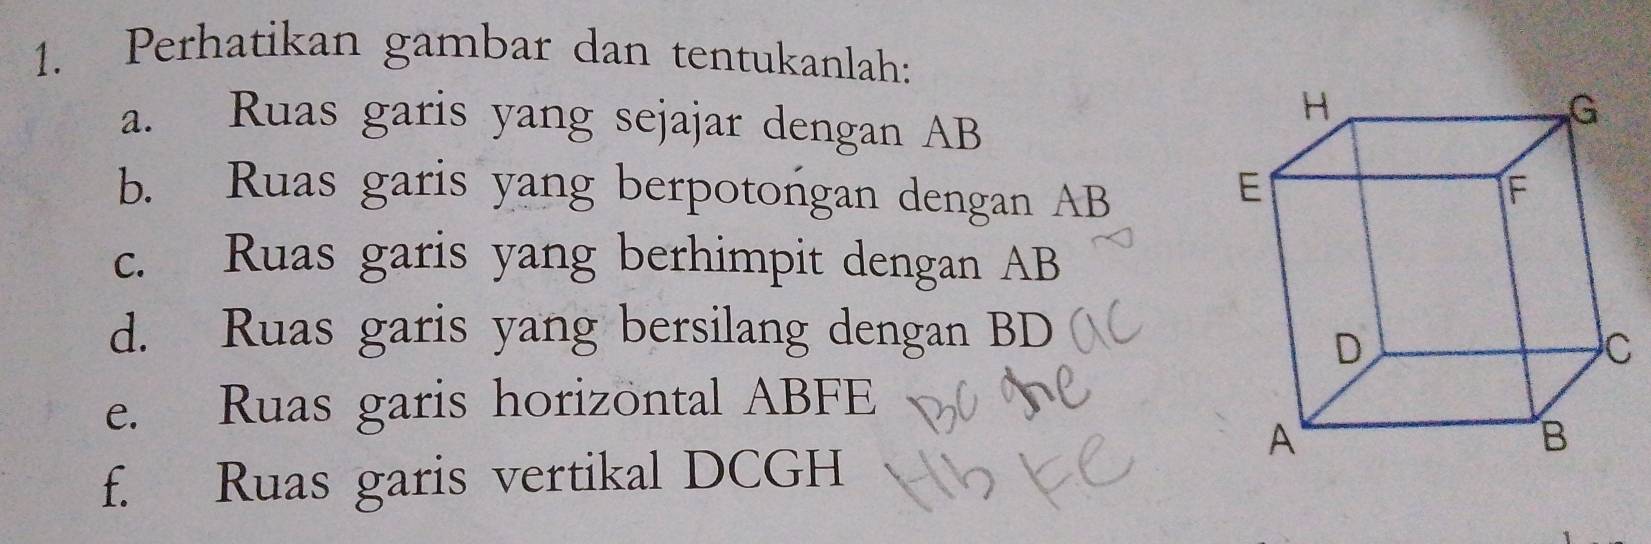 1. Perhatikan gambar dan tentukanlah:
a. Ruas garis yang sejajar dengan AB
b. Ruas garis yang berpotongan dengan AB
c. Ruas garis yang berhimpit dengan AB
d. Ruas garis yang bersilang dengan BD ac
e. Ruas garis horizontal ABFE BC
f. Ruas garis vertikal DCGH Hb FC
H G
E F
D C
A B